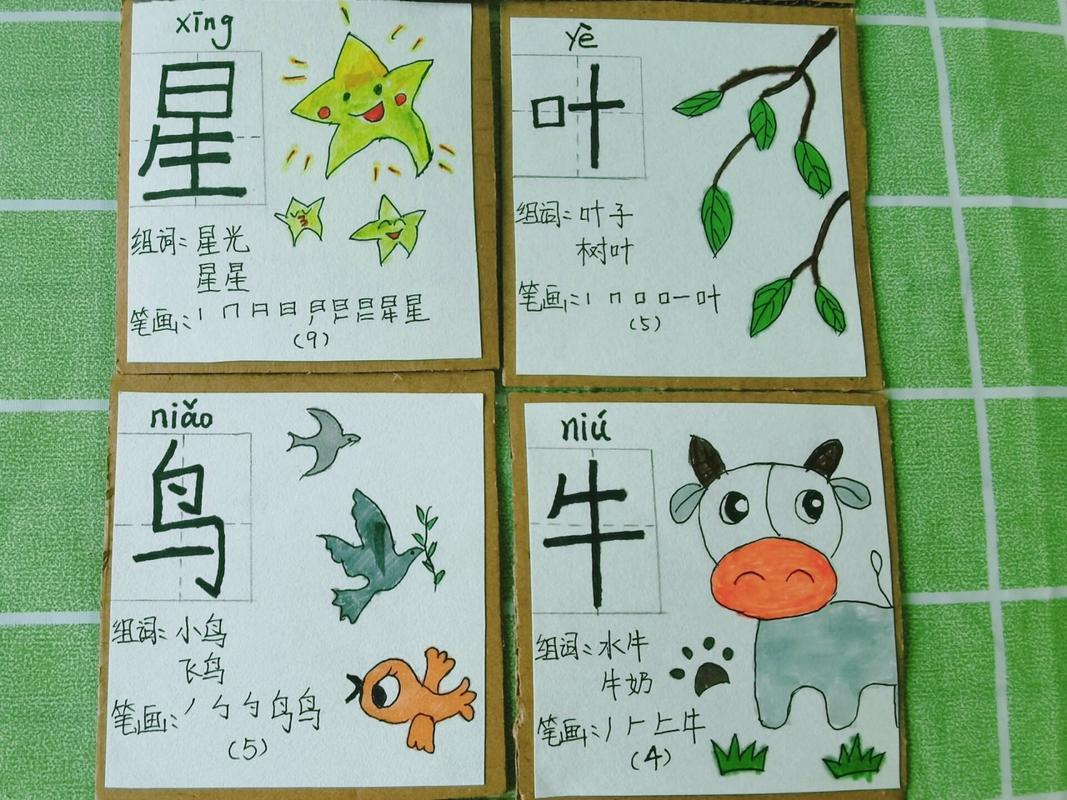 xīng
星
组词:星光
星星
笔画:丨 冂 日 日 星
(9)
yè
叶
组词:叶子
树叶
笔画:丨 冂 口 口一 叶
(5)
niǎo
鸟
组词:小鸟
飞鸟
笔画:丿 勹 勹 鸟 鸟
(5)
niú
牛
组词:水牛
牛奶
笔画:丿 𠂉 牛
(4)